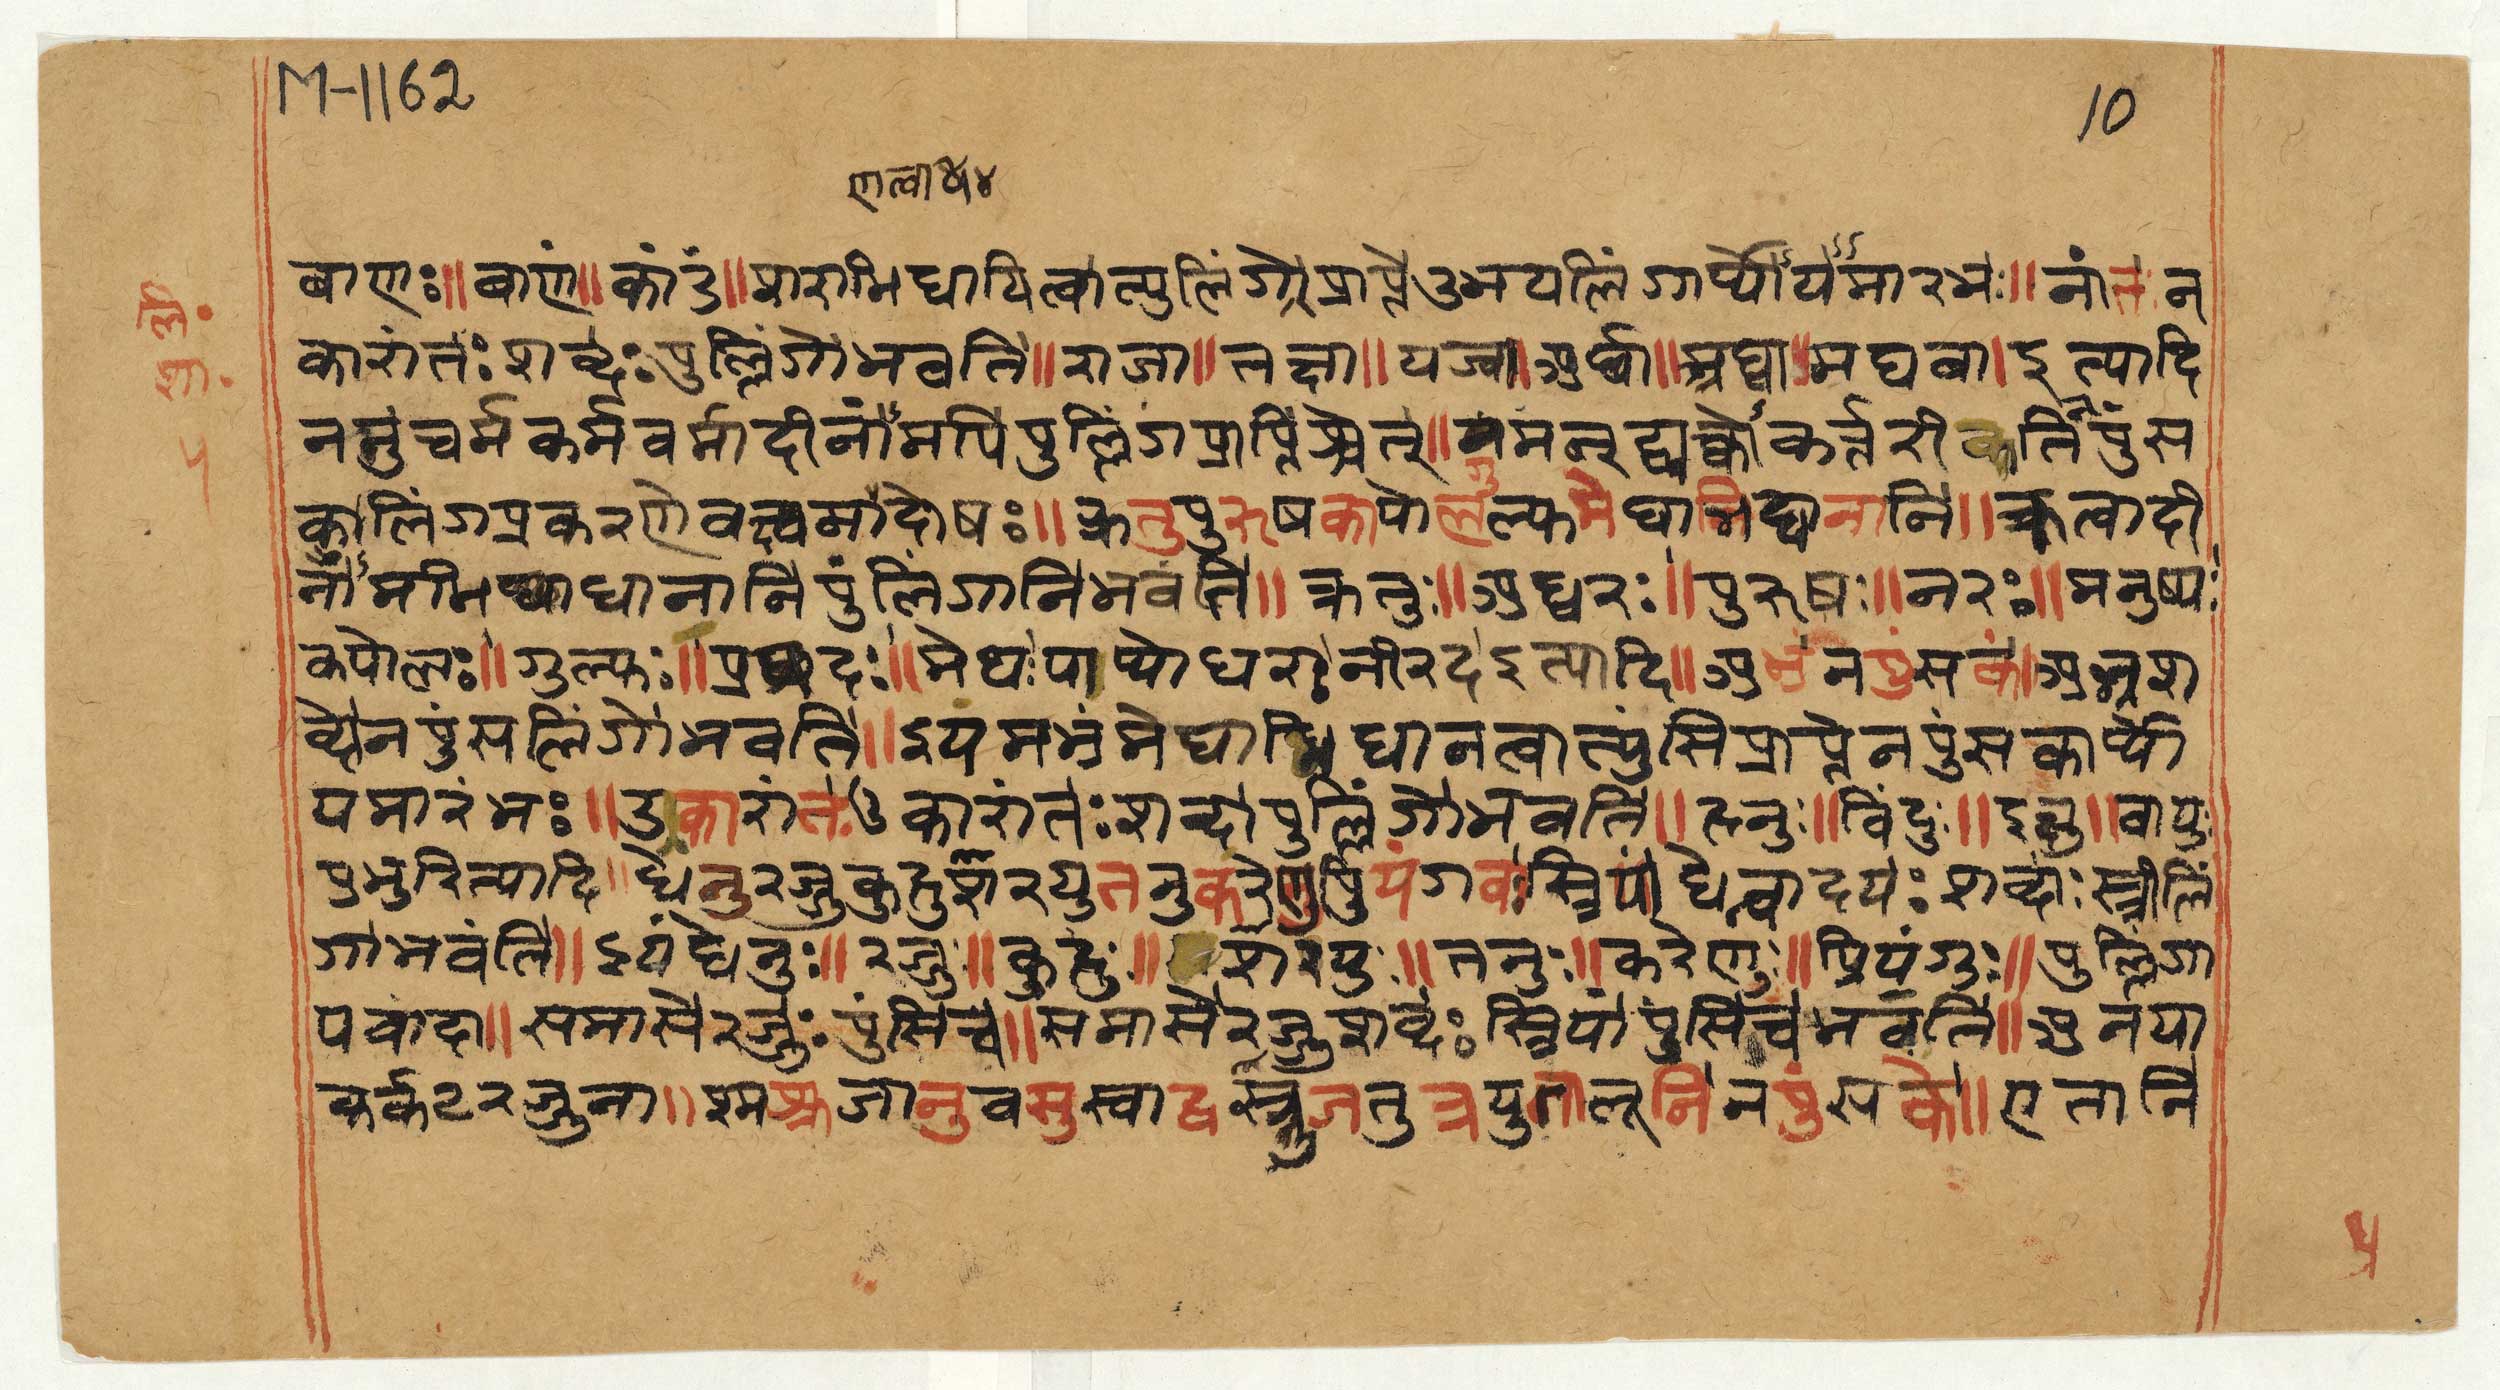 M-1162
10
बाणः॥बाणं॥कांडं॥शराभिधायित्वात्पुलिंगेप्राप्तेउभयलिंगार्थोऽयमारभः॥नांतःन्
कारांतःशब्दःपुल्लिंगोभवति॥राजा॥तक्षा॥यज्वा॥अर्थ्वा॥अध्वा॥मघवा।इत्यादि
ननुचर्मकर्मवर्मादीनांऽमपिपुल्लिंगप्राप्तिश्चेत्॥नमन्द्व्यच्कोऽकर्त्तरीतिनपुंस
कलिंगप्रकरणेवक्ष्यमादोषः॥क्रतुपुरुषकपोलगुल्फमेघाभिधानानि॥क्रत्वादी
नांऽमभिधानानिपुंलिंगानिभवंति॥क्रतुः॥अध्वरः॥पुरुषः॥नरः॥मनुष्यः
कपोलः॥गुल्फः॥प्रपदः॥मेघःपयोधरःनीरदइत्यादि॥अभ्रंनपुंसकं॥अभ्रश
ब्दोनपुंसलिंगोभवति॥इयमभ्रंमेघाभिधानत्वात्पुंसिप्राप्तेनपुंसकार्थो
यमारंभः॥उकारांतःउकारांतःशब्दोपुल्लिंगोभवति॥दनुः॥विंदुः॥इक्षु॥वायुः
प्रभुरित्यादि॥धेनुरज्जुकुहुशरयुतनुकरेणुप्रियंगवःस्त्रियां॥धेन्वादयःशब्दाःस्त्रीलिं
गाभवंति॥इयंधेनुः॥रज्जुः॥कुहुः॥शरयुः॥तनुः॥करेणुः॥प्रियंगुः॥पुल्लिंगा
पवादा॥समासेरज्जुःपुंसिच॥समासेरज्जुशब्दःस्त्रियांपुंसिचभवति॥अनया
कर्कटरज्जुना॥श्मश्रुजानुवसुस्वाद्वस्त्रुजतुत्रपुतालूनिनपुंसके॥एतानि
५
५